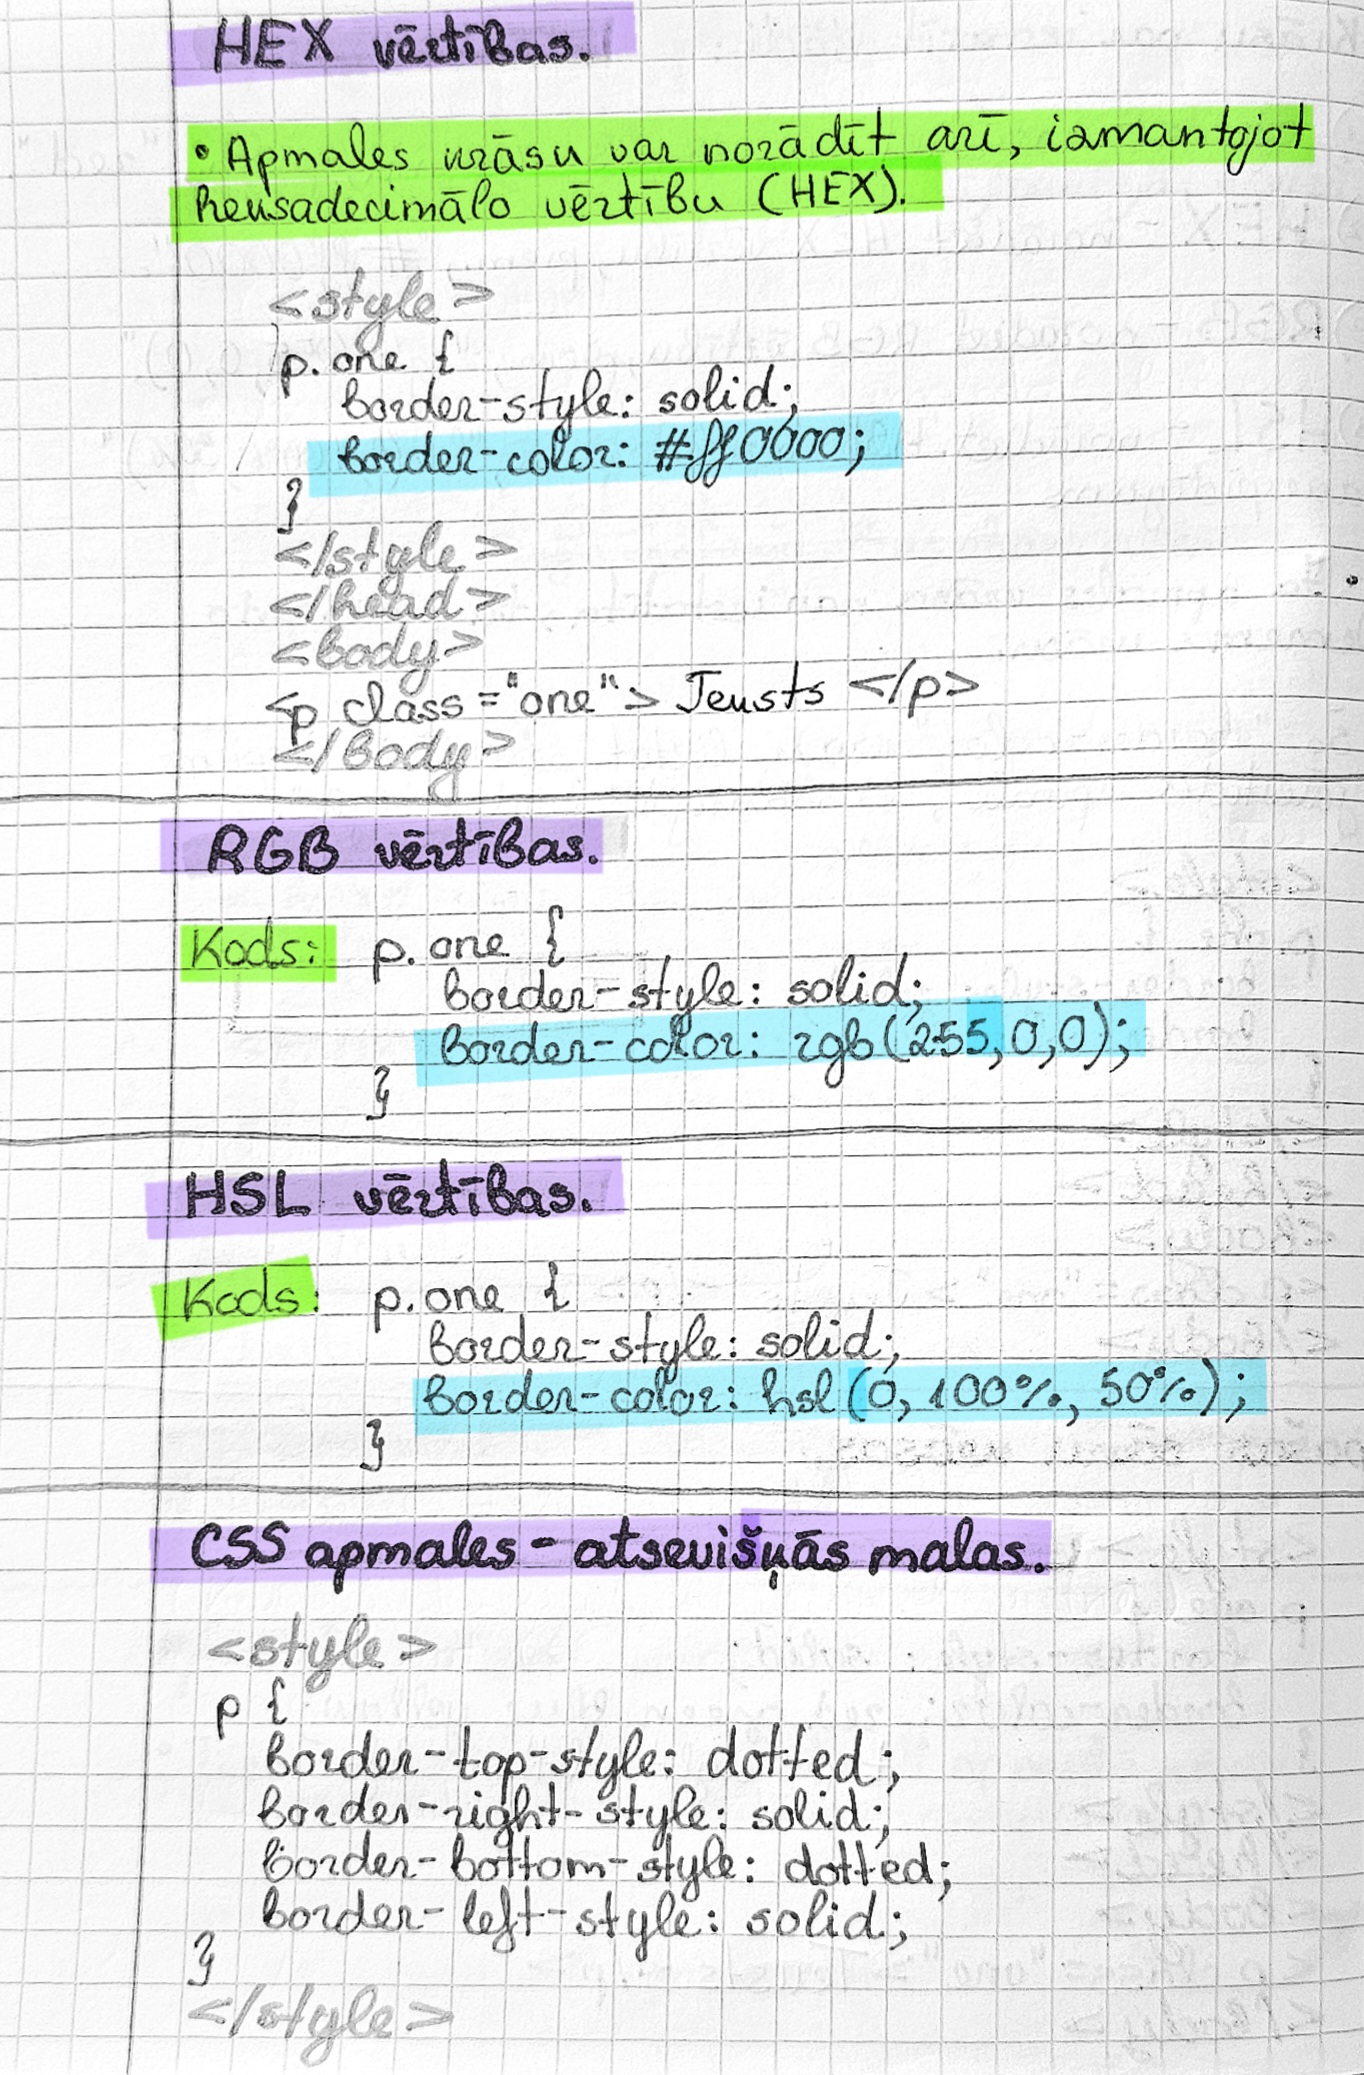 HEX vērtības.
• Apmales krāsu var norādīt arī, izmantojot
heksadecimālo vērtību (HEX).
<style>
p.one {
border-style: solid;
border-color: #ff0000;
}
</style>
</head>
<body>
<p class="one"> Teksts </p>
</body>
RGB vērtības.
Kods: p.one {
border-style: solid;
border-color: rgb(255,0,0);
}
HSL vērtības.
Kods: p.one {
border-style: solid;
border-color: hsl(0, 100%, 50%);
}
CSS apmales - atsevišķās malas.
<style>
p {
border-top-style: dotted;
border-right-style: solid;
border-bottom-style: dotted;
border-left-style: solid;
}
</style>